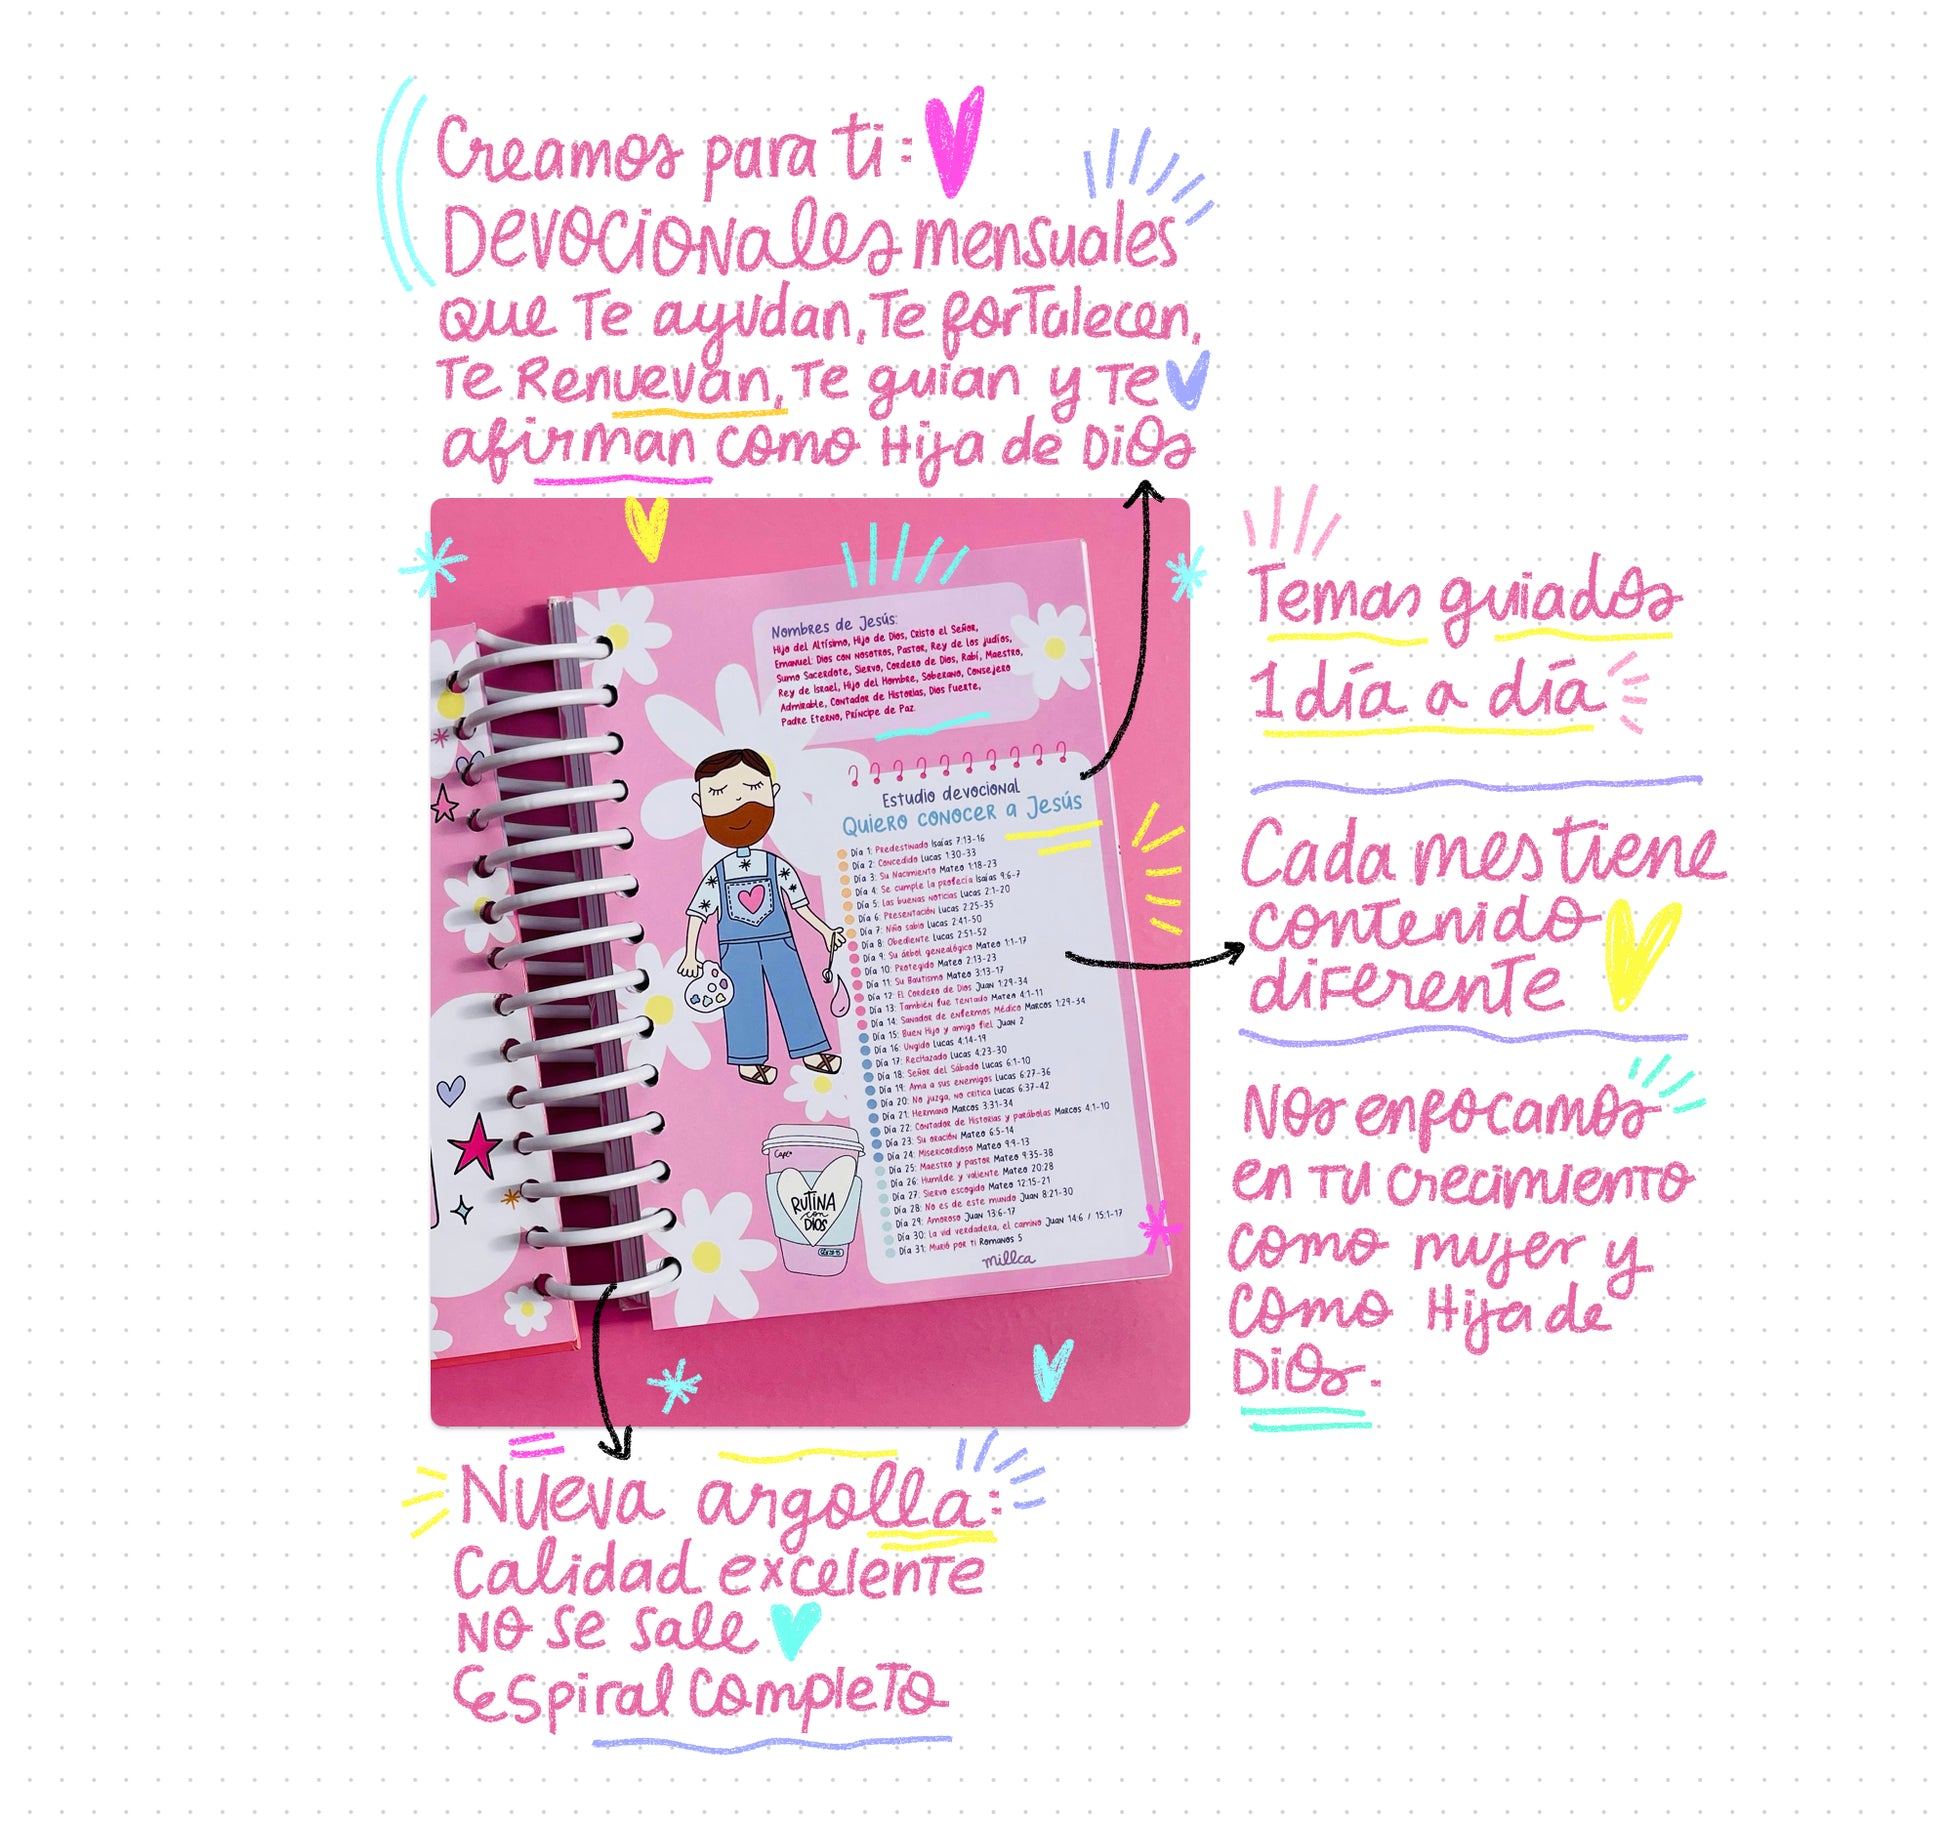 Creamos para ti:
Devocionales mensuales
que te ayudan, te fortalecen,
te Renuevan, te guian y te
afirman como Hija de Dios
Nombres de Jesús:
Hijo del Altísimo, Hijo de Dios, Cristo el Señor,
Emanuel: Dios con nosotros, Pastor, Rey de los judíos,
Sumo Sacerdote, Siervo, Cordero de Dios, Rabí, Maestro,
Rey de Israel, Hijo del Hombre, Soberano, Consejero
Admirable, Contador de Historias, Dios Fuerte,
Padre Eterno, Príncipe de Paz.
Estudio devocional
Quiero conocer a Jesús
Día 1: Predestinado Isaías 7:13-16
Día 2: Concedido Lucas 1:30-33
Día 3: Su Nacimiento Mateo 1:18-23
Día 4: Se cumple la profecía Isaías 9:6-7
Día 5: Las buenas noticias Lucas 2:1-20
Día 6: Presentación Lucas 2:25-35
Día 7: Niño sabio Lucas 2:41-50
Día 8: Obediente Lucas 2:51-52
Día 9: Su árbol genealógico Mateo 1:1-17
Día 10: Protegido Mateo 2:13-23
Día 11: Su Bautismo Mateo 3:13-17
Día 12: El Cordero de Dios Juan 1:29-34
Día 13: También fue tentado Mateo 4:1-11
Día 14: Sanador de enfermos Médico Marcos 1:29-34
Día 15: Buen Hijo y amigo fiel Juan 2
Día 16: Ungido Lucas 4:14-19
Día 17: Rechazado Lucas 4:23-30
Día 18: Señor del Sábado Lucas 6:1-10
Día 19: Ama a sus enemigos Lucas 6:27-36
Día 20: No juzga, no critica Lucas 6:37-42
Día 21: Hermano Marcos 3:31-34
Día 22: Contador de Historias y parábolas Marcos 4:1-10
Día 23: Su oración Mateo 6:5-14
Día 24: Misericordioso Mateo 9:9-13
Día 25: Maestro y pastor Mateo 9:35-38
Día 26: Humilde y valiente Mateo 20:28
Día 27: Siervo escogido Mateo 12:15-21
Día 28: No es de este mundo Juan 8:21-30
Día 29: Amoroso Juan 13:6-17
Día 30: La vid verdadera, el camino Juan 14:6 / 15:1-17
Día 31: Murió por ti Romanos 5
millca
Café
RUTINA
con
DIOS
Temas guiados
1 día a día
Cada mes tiene
contenido
diferente
Nos enfocamos
en tu crecimiento
como mujer y
como Hija de
Dios.
Nueva argolla:
Calidad excelente
NO se sale
Espiral completo